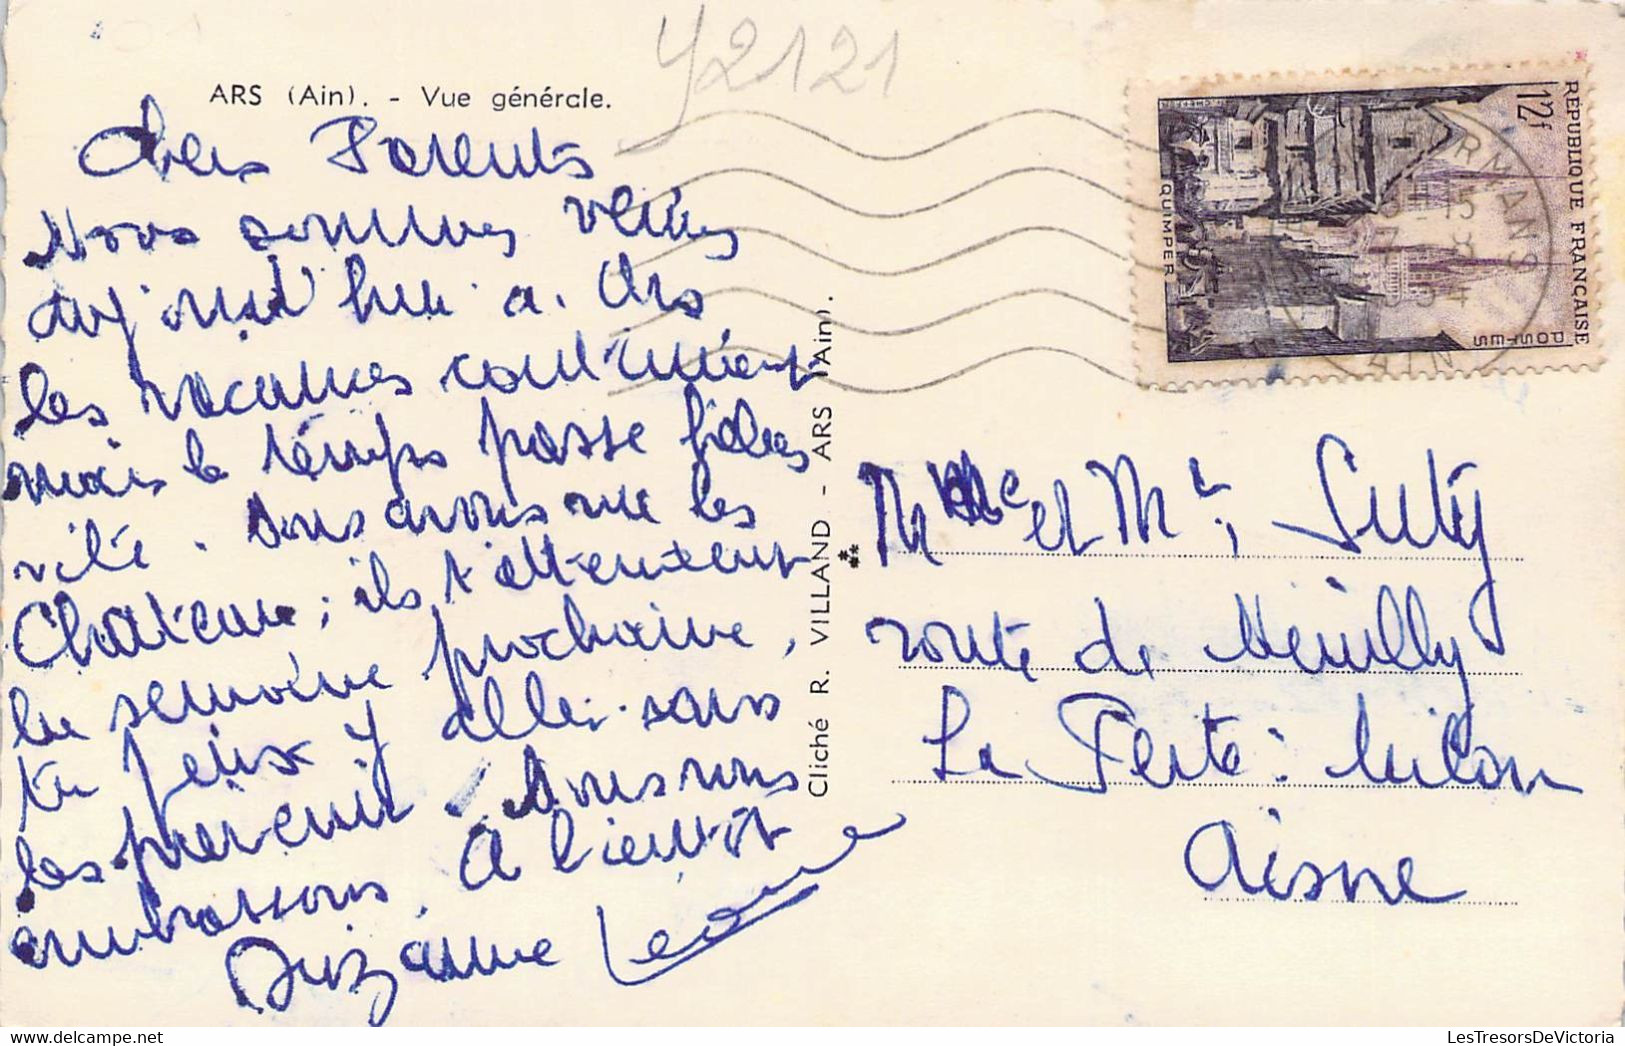 Y2121
ARS (Ain). - Vue générale.
Chers Parents
Nous sommes venues
aujourd'hui a Ars
les vacances continuent
mais le temps passe
vite. Nous avons vue les
Chateaux; ils t'attendent
la semaine prochaine,
tu peux y aller sans
les prevenir. Nous vous
embrassons. A bientôt
Suzanne Léonie
Cliché R. VILLAND - ARS (Ain).
RÉPUBLIQUE FRANÇAISE
12f
POSTES
QUIMPER
15
7 8
54
AIN
Mme et Mr
route de Neuilly
La Ferté: Milon
Aisne
LesTresorsDeVictoria